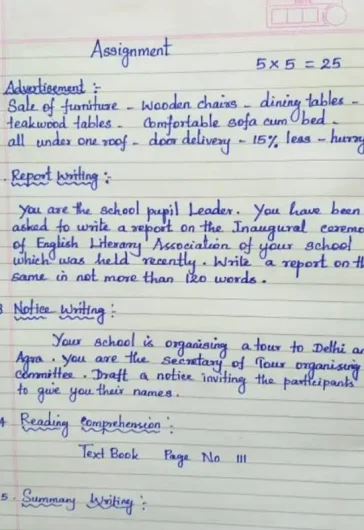 Assignment
5 x 5 = 25
Advertisement :-
Sale of furniture - wooden chairs - dining tables -
teakwood tables - Comfortable sofa cum bed -
all under one roof - door delivery - 15% less - hurry
Report Writing :-
You are the school pupil Leader. You have been
asked to write a report on the Inaugural ceremo
of English Literary Association of your school
which was held recently. Write a report on th
same in not more than 120 words.
3 Notice Writing :-
Your school is organising a tour to Delhi an
Agra. You are the secretary of Tour organising
Committee. Draft a notice inviting the participants
to give you their names.
4 Reading Comprehension :-
Text Book Page No 111
5. Summary Writing :-